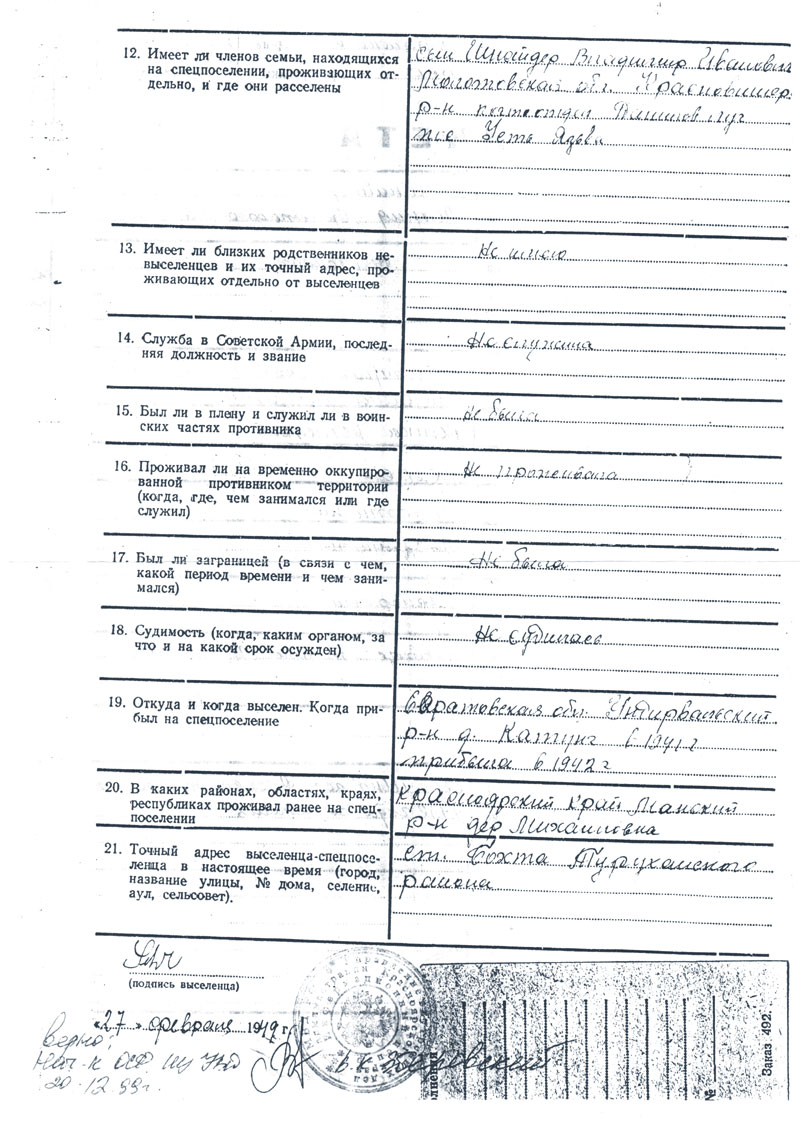 12. Имеет ли членов семьи, находящихся
на спецпоселении, проживающих от-
дельно, и где они расселены
сын Шнайдер Владимир Иванович
Молотовская обл. Красновишер
р-н
Усть Язьва
13. Имеет ли близких родственников не-
выселенцев и их точный адрес, про-
живающих отдельно от выселенцев
Не имею
14. Служба в Советской Армии, послед-
няя должность и звание
Не служила
15. Был ли в плену и служил ли в воин-
ских частях противника
не была
16. Проживал ли на временно оккупиро-
ванной противником территории
(когда, где, чем занимался или где
служил)
Не проживала
17. Был ли заграницей (в связи с чем,
какой период времени и чем зани-
мался)
Не была
18. Судимость (когда, каким органом, за
что и на какой срок осужден)
Не судилась
19. Откуда и когда выселен. Когда при-
был на спецпоселение
Саратовская обл.
р-н д. в 1941 г
прибыла в 1942 г
20. В каких районах, областях, краях,
республиках проживал ранее на спец-
поселении
Красноярский край Манский
р-н дер Михайловка
21. Точный адрес выселенца-спецпосе-
ленца в настоящее время (город,
название улицы, № дома, селение,
аул, сельсовет).
ст. Бахта Туруханского
района
(подпись выселенца)
«27» февраля 1949 г.
Верно:
20.12.99г.
Заказ 492.
№